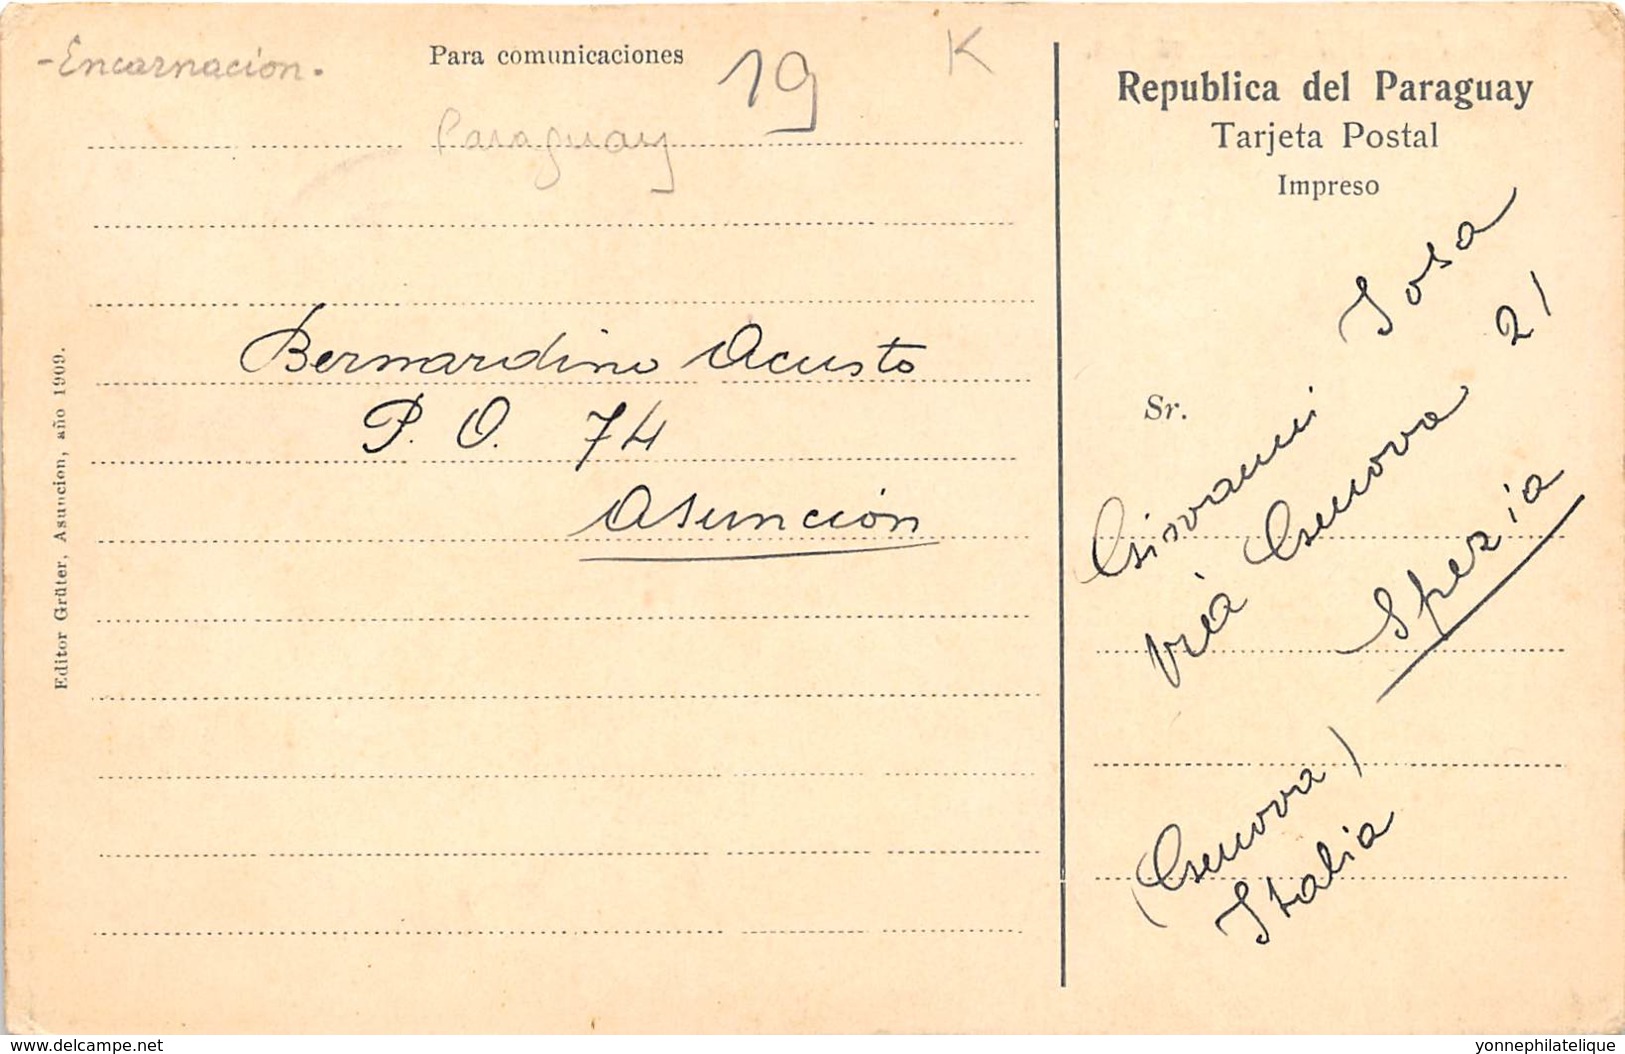 -Encarnacion.
Para comunicaciones
19
K
Paraguay
Bernardino Acusto
P. O. 74
Asunción
Editor Grüter, Asuncion, año 1909.
Republica del Paraguay
Tarjeta Postal
Impreso
Sr.
Giovanni Sosa
via Genova 21
Spezia
(Genova)
Italia
delcampe.net
yonnephilatelique